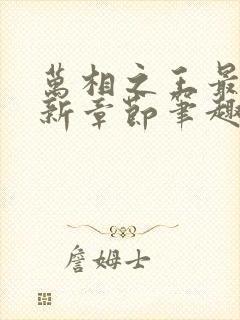 萬相之王最
新章節筆趣
詹姆士